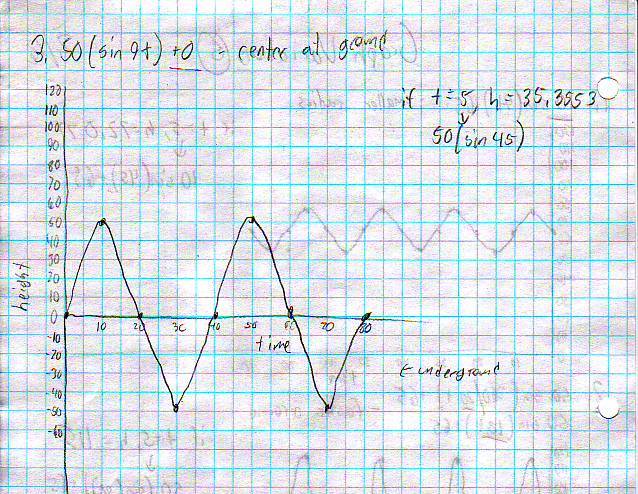 3. 50(sin 9t) +0 = center at ground
if t=5, h=35.3553
50(sin 45)
120
110
100
90
80
70
60
50
40
30
20
10
0
-10
-20
-30
-40
-50
-60
height
10 20 30 40 50 60 70 80
time
← underground